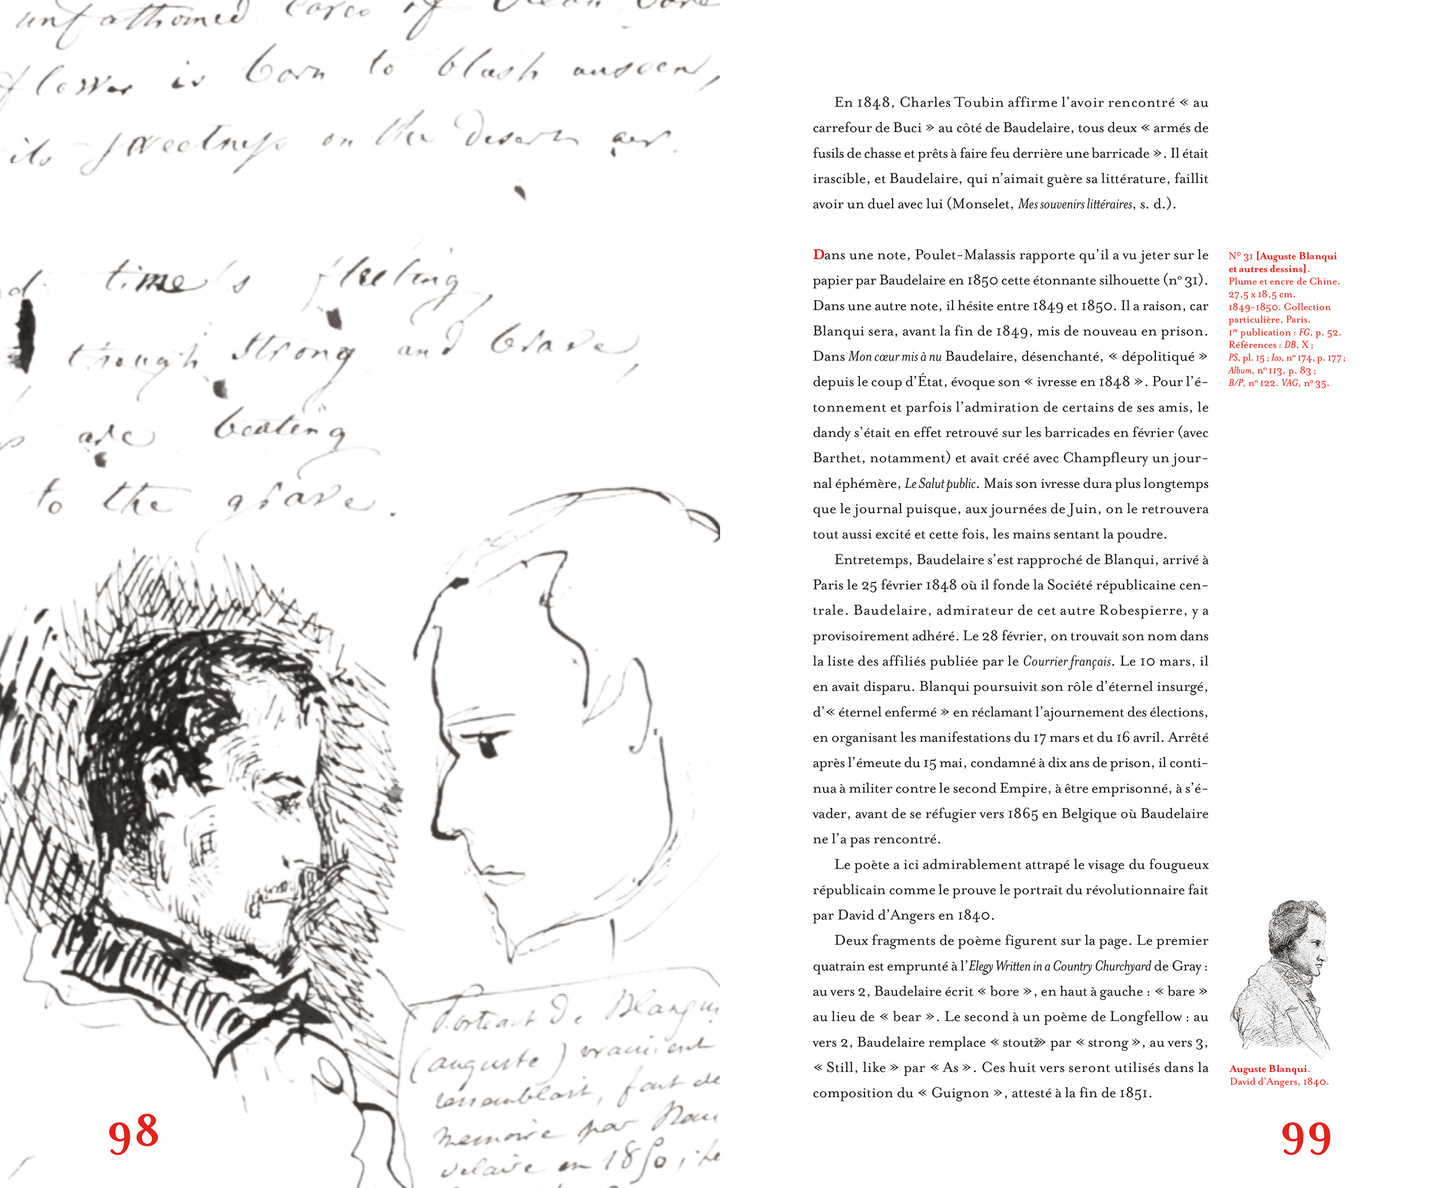 unfathomed caves of Ocean
flower is born to blush unseen,
its sweetness on the desert air.
time's fleeting,
trough strong and brave,
are beating
to the grave.
Portrait de Blanqui
(auguste) vraiment
ressemblant, fait de
memoire par Bau
delaire en 1850,
98
En 1848, Charles Toubin affirme l’avoir rencontré « au
carrefour de Buci » au côté de Baudelaire, tous deux « armés de
fusils de chasse et prêts à faire feu derrière une barricade ». Il était
irascible, et Baudelaire, qui n’aimait guère sa littérature, faillit
avoir un duel avec lui (Monselet, Mes souvenirs littéraires, s. d.).
Dans une note, Poulet-Malassis rapporte qu’il a vu jeter sur le
papier par Baudelaire en 1850 cette étonnante silhouette (nº 31).
Dans une autre note, il hésite entre 1849 et 1850. Il a raison, car
Blanqui sera, avant la fin de 1849, mis de nouveau en prison.
Dans Mon cœur mis à nu Baudelaire, désenchanté, « dépolitiqué »
depuis le coup d’État, évoque son « ivresse en 1848 ». Pour l’é-
tonnement et parfois l’admiration de certains de ses amis, le
dandy s’était en effet retrouvé sur les barricades en février (avec
Barthet, notamment) et avait créé avec Champfleury un jour-
nal éphémère, Le Salut public. Mais son ivresse dura plus longtemps
que le journal puisque, aux journées de Juin, on le retrouvera
tout aussi excité et cette fois, les mains sentant la poudre.
Entretemps, Baudelaire s’est rapproché de Blanqui, arrivé à
Paris le 25 février 1848 où il fonde la Société républicaine cen-
trale. Baudelaire, admirateur de cet autre Robespierre, y a
provisoirement adhéré. Le 28 février, on trouvait son nom dans
la liste des affiliés publiée par le Courrier français. Le 10 mars, il
en avait disparu. Blanqui poursuivit son rôle d’éternel insurgé,
d’« éternel enfermé » en réclamant l’ajournement des élections,
en organisant les manifestations du 17 mars et du 16 avril. Arrêté
après l’émeute du 15 mai, condamné à dix ans de prison, il conti-
nua à militer contre le second Empire, à être emprisonné, à s’é-
vader, avant de se réfugier vers 1865 en Belgique où Baudelaire
ne l’a pas rencontré.
Le poète a ici admirablement attrapé le visage du fougueux
républicain comme le prouve le portrait du révolutionnaire fait
par David d’Angers en 1840.
Deux fragments de poème figurent sur la page. Le premier
quatrain est emprunté à l’Elegy Written in a Country Churchyard de Gray :
au vers 2, Baudelaire écrit « bore », en haut à gauche : « bare »
au lieu de « bear ». Le second à un poème de Longfellow : au
vers 2, Baudelaire remplace « stout » par « strong », au vers 3,
« Still, like » par « As ». Ces huit vers seront utilisés dans la
composition du « Guignon », attesté à la fin de 1851.
Nº 31 [Auguste Blanqui
et autres dessins].
Plume et encre de Chine.
27,5 x 18,5 cm.
1849-1850. Collection
particulière, Paris.
1re publication : FG, p. 52.
Références : DB, X ;
PS, pl. 15 ; Ico, nº 174, p. 177 ;
Album, nº 113, p. 83 ;
B/P, nº 122. VAG, nº 35.
Auguste Blanqui.
David d’Angers, 1840.
99